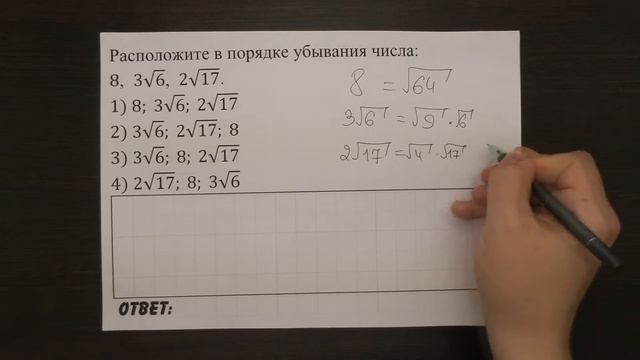 Расположите в порядке убывания числа:
8, 3√6, 2√17.
1) 8; 3√6; 2√17
2) 3√6; 2√17; 8
3) 3√6; 8; 2√17
4) 2√17; 8; 3√6
8 = √64
3√6 = √9 · √6
2√17 = √4 · √17
ОТВЕТ: